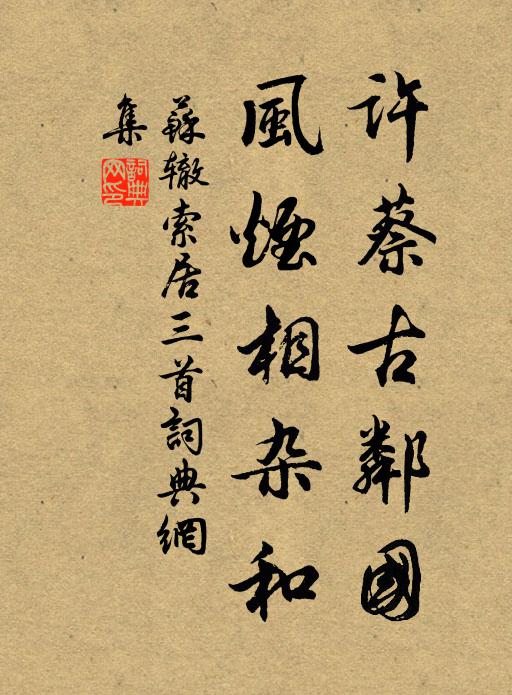 許蔡古鄰國
風煙相杂和
蘇辙索居三首詞典網
集
詞典网印